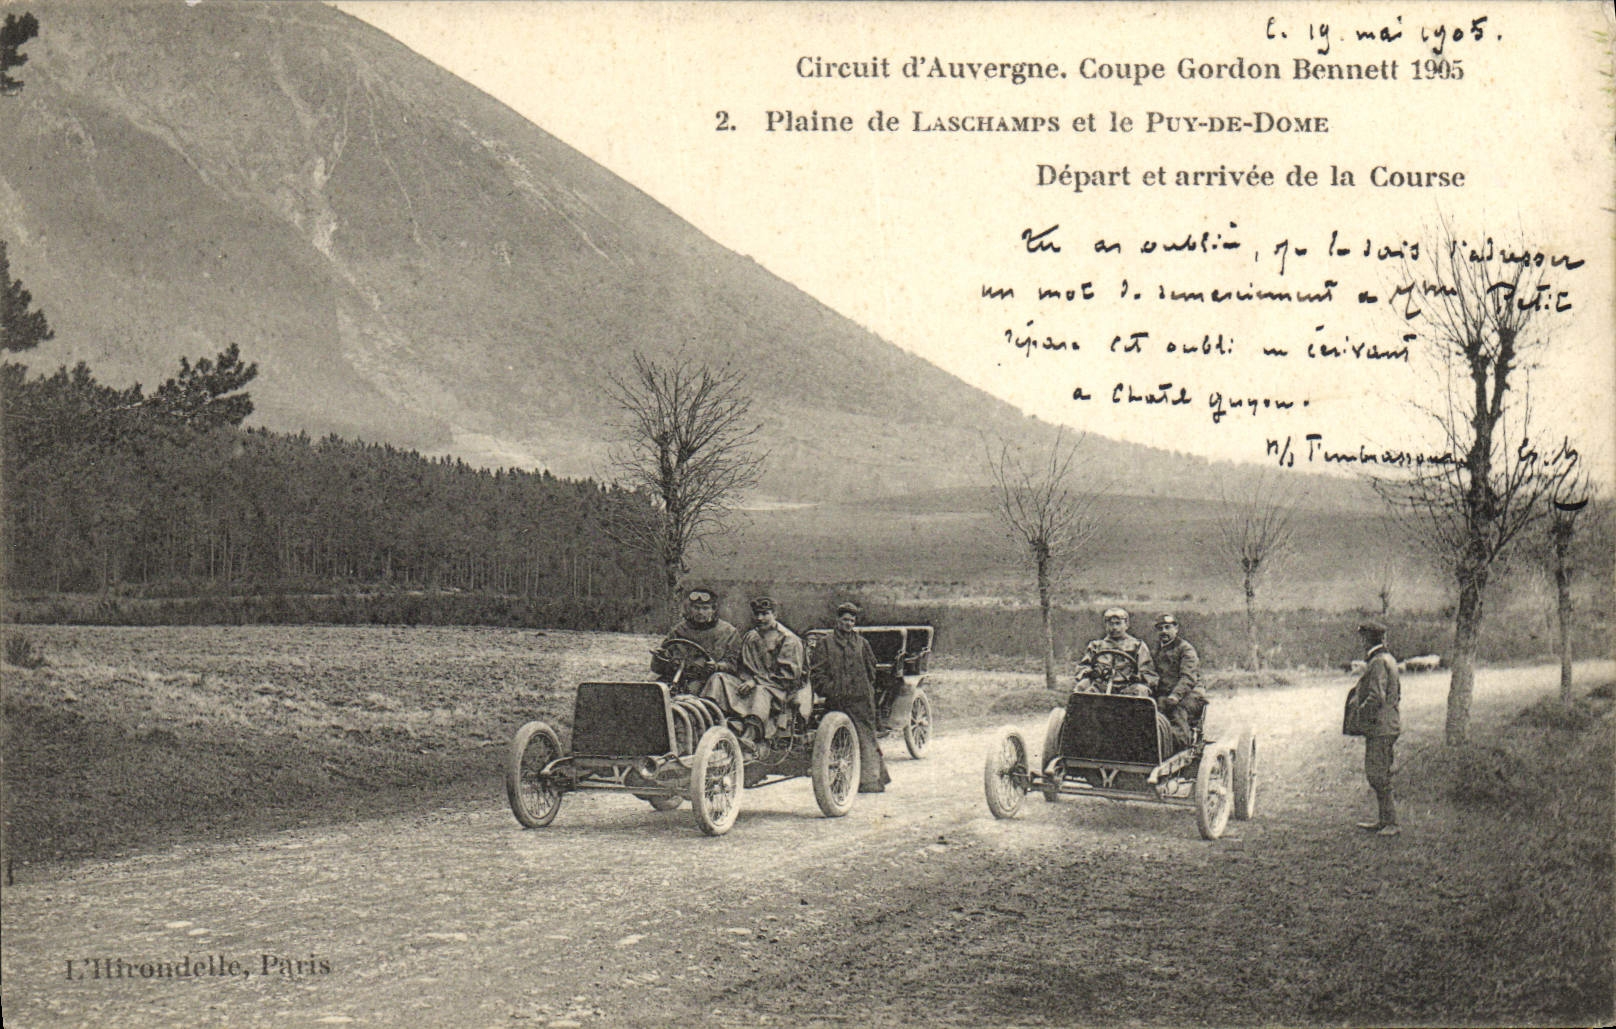 C. 19 mai 1905.
Circuit d'Auvergne. Coupe Gordon Bennett 1905
2. Plaine de LASCHAMPS et le PUY-DE-DOME
Départ et arrivée de la Course
Tu as oublié, je le sais d'adresser
un mot de remerciement a Mme Petit
répare cet oubli en écrivant
a Chatel Guyon.
T'embrassons
L'Hirondelle, Paris